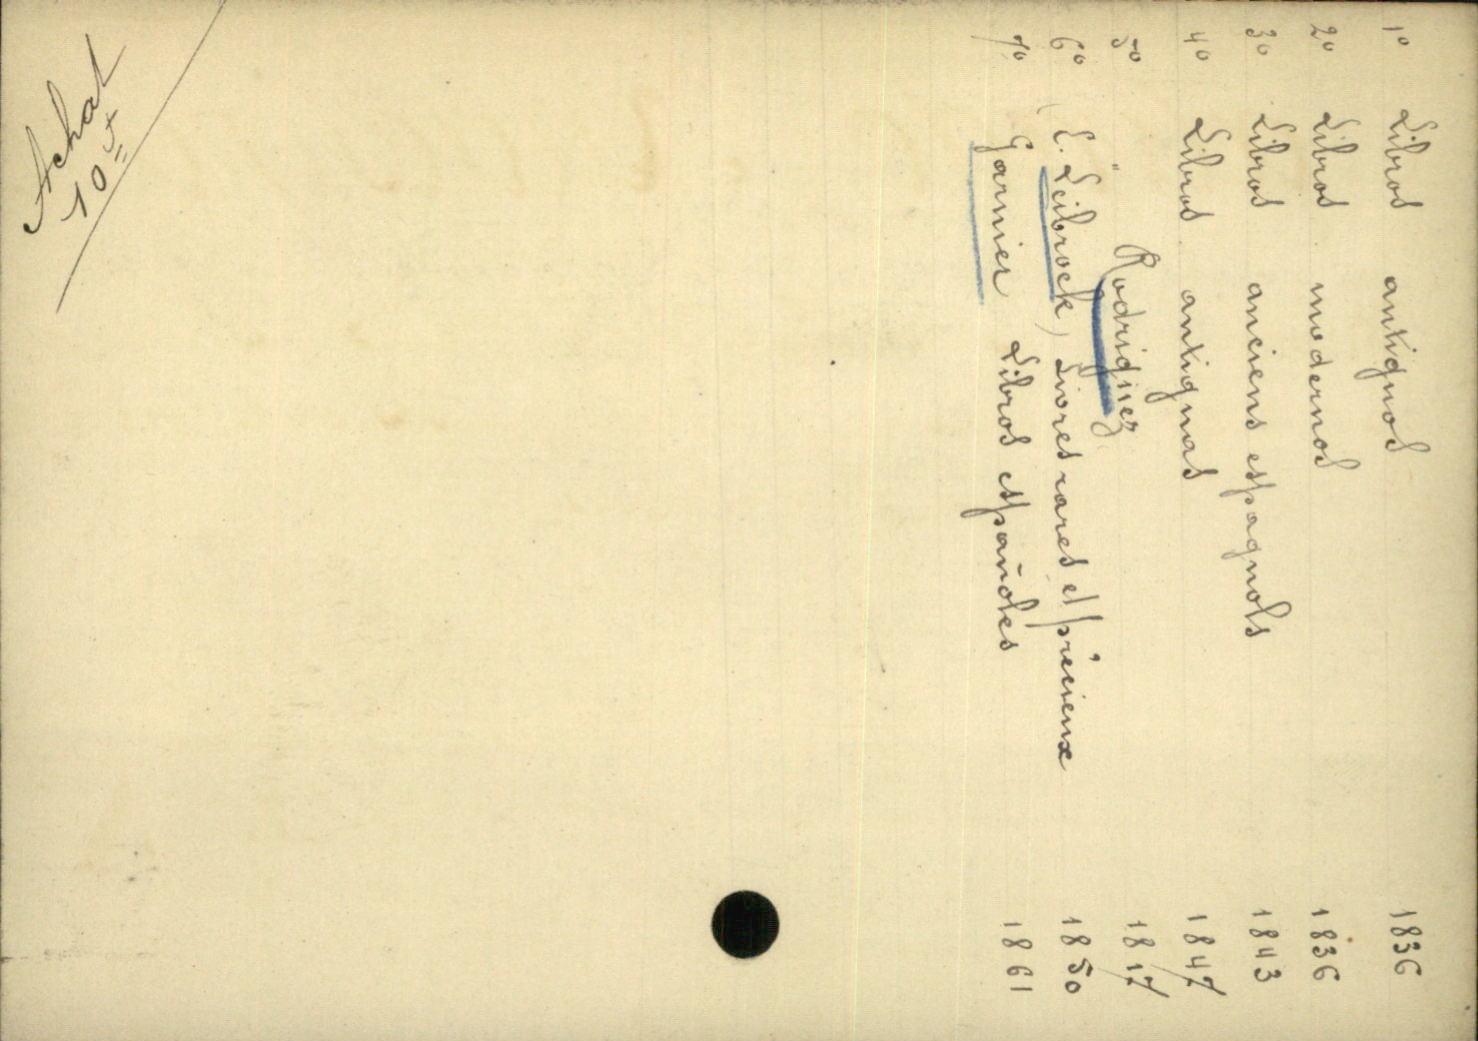 1º Libros antiguos 1836
2º Libros modernos 1836
3º Libros anciens espagnols 1843
4º Libros antiguas 1847
5º " Rodriguez 1847
6º (E. Leibrock) Livres rares et précieux 1850
7º Garnier Libros españoles 1861
Achat
10